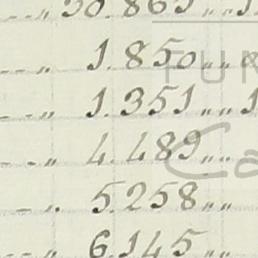 30.861 „ „ 1
„ 1.850 „ „
„ 1.351 „ „ 1
„ 4.489 „ „
„ 5.258 „ „
„ 6.145 „ „
FUN
Ca